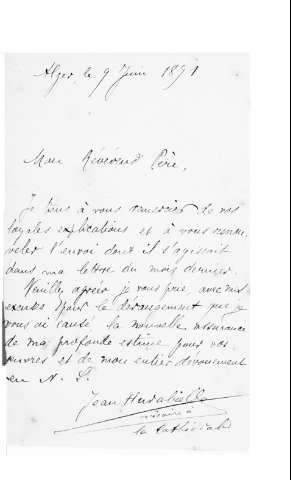 Alger, le 9 Juin 1891
Mon Révérend Père,
Je tiens à vous remercier de vos
loyales explications et à vous renou-
veler l'envoi dont il s'agissait
dans ma lettre du mois dernier.
Veuillez agréer je vous prie, avec mes
excuses pour le dérangement que je
vous ai causé la nouvelle assurance
de ma profonde estime pour vos
œuvres et de mon entier dévouement
en N. S.
Jean
vicaire à
la Cathédrale